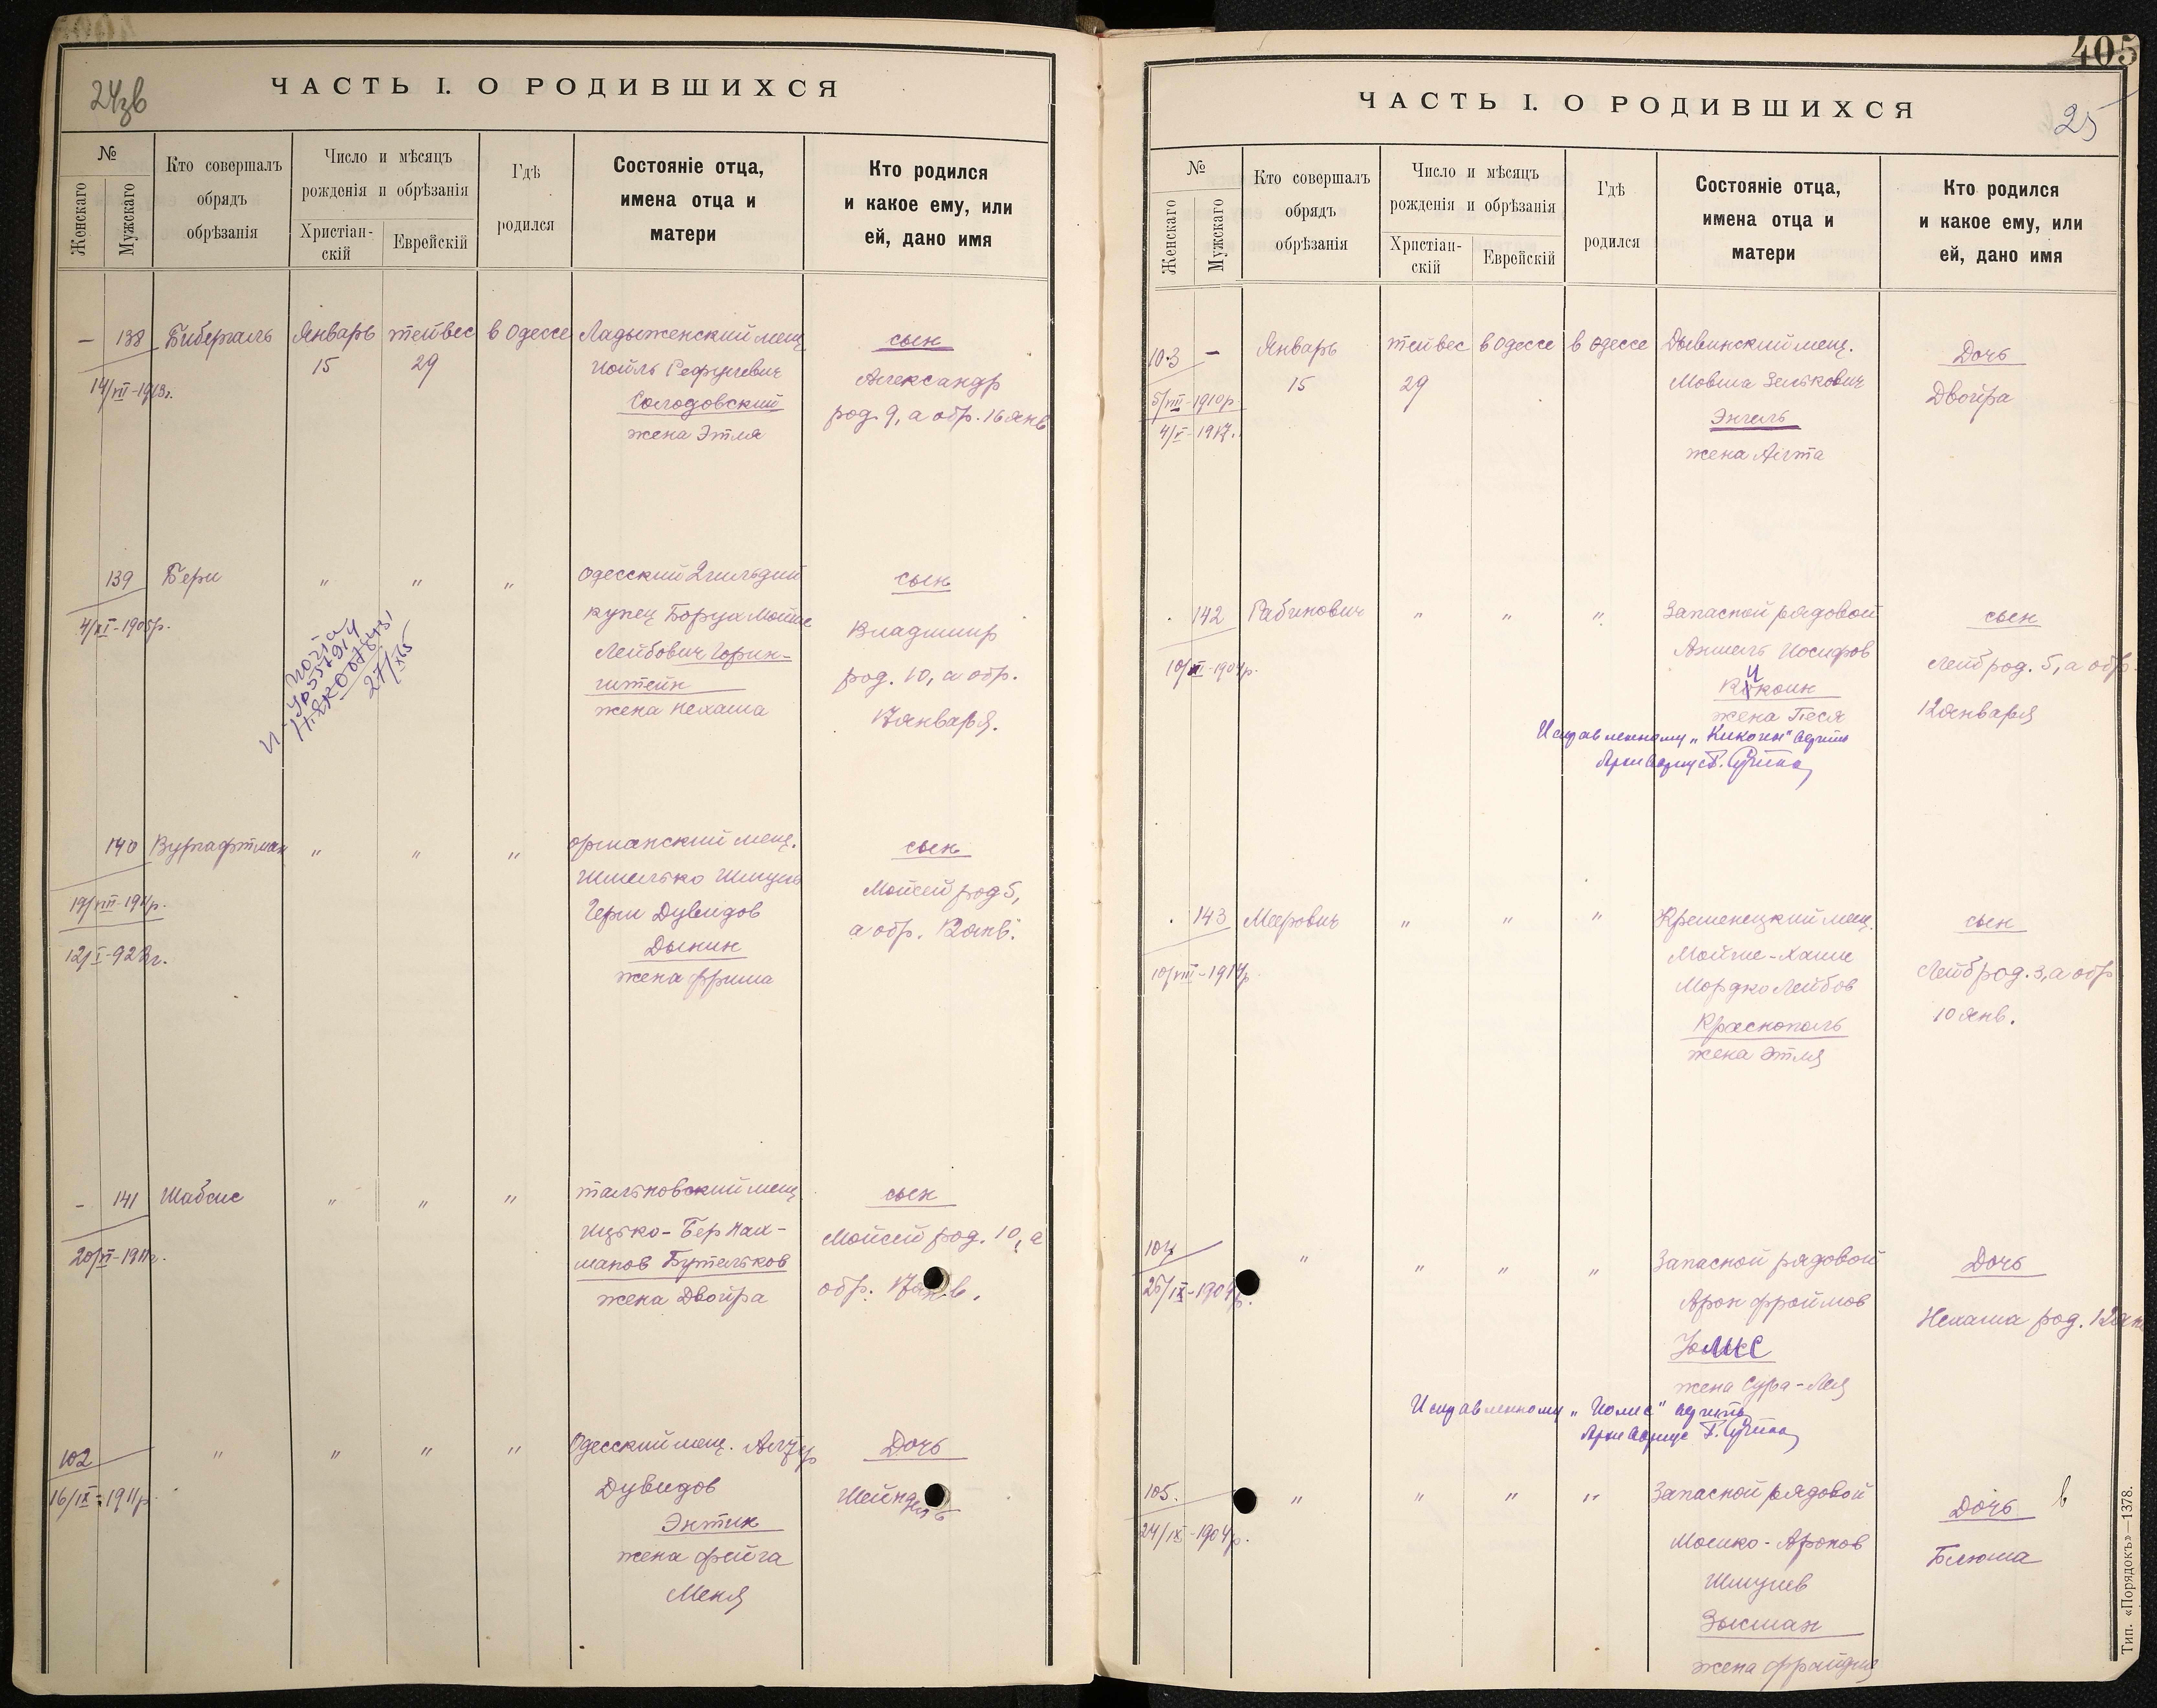 24зв
ЧАСТЬ I. О РОДИВШИХСЯ
№
Женскаго
Мужскаго
Кто совершалъ
обрядъ
обрѣзанія
Число и мѣсяцъ
рожденія и обрѣзанія
Христіан-
скій
Еврейскій
Гдѣ
родился
Состояніе отца,
имена отца и
матери
Кто родился
и какое ему, или
ей, дано имя
— 138 Бибергаль Январь тейвес в Одессе Ладыженский мещ. сын
14/VII-1913г. 15 29 Иойль Александр
Солодовский род. 9, а обр. 16 янв
жена Этля
139 Бери " " " Одесский 2 гильдии сын
купец Борух Мойше Владимир
Лейбович Горин-
штейн род. 10, а обр.
жена Нехама 17 января.
27/X65
140 Вургафтман " " " оргианский мещ. сын
Шмилько Шмуль Мойсей род 5,
19/VIII-191 р.
Герш Дувидов а обр. 12 янв.
12/I-922г. Дынин
жена Фрима
- 141 Шабсис " " " тальновский мещ. сын
Ицько-Бер Нах- Мойсей род. 10, а
20/VI-1911г. манов Бутельков обр. 17 янв.
жена Двойра
102 " " " " Одесский мещ. Дочь
16/IX-1911р. Дувидов
Энтин
жена Фейга
Меня
405
25
ЧАСТЬ I. О РОДИВШИХСЯ
№
Женскаго
Мужскаго
Кто совершалъ
обрядъ
обрѣзанія
Число и мѣсяцъ
рожденія и обрѣзанія
Христіан-
скій
Еврейскій
Гдѣ
родился
Состояніе отца,
имена отца и
матери
Кто родился
и какое ему, или
ей, дано имя
103 — Январь тейвес в Одессе в Одессе Дывинский мещ. Дочь
5/VIII-1910р. 15 29 Мовша Зелькович Двойра
4/V-1917. Энгель
жена
142 Рабинович " " " Запасной рядовой сын
Аншель Иосифов Лейб род. 5, а обр.
Кикоин
жена Песя 12 января
Исправленному „Кикоин" верить
Архивариус
143 Меерович " " " Кременецкий мещ. сын
Мойше-Хаим Лейб род. 3, а обр
10/VIII-1914р. Мордко Лейбов
Краснополь 10 янв.
жена Этля
104 " " " " Запасной рядовой Дочь
25/IX-1904р. Арон Фроймов Нехама род. 12 янв
Иолис
жена Сура-Лея
Исправленному „Иолис" верить
Архивариус
105. " " " " Запасной рядовой Дочь
24/IX-1904р. Мошко-Аронов Блюма
Шмулев
Зысман
жена Фрайда
Тип. «Порядокъ»—1378.